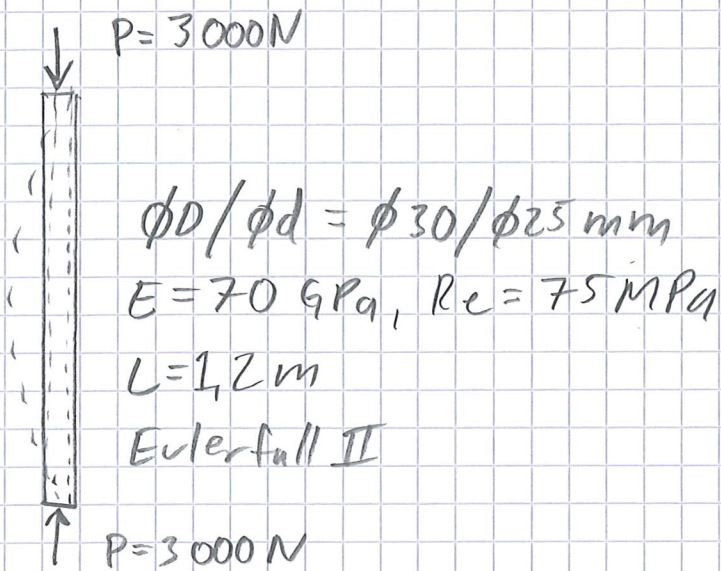 P=3000N
ϕD/ϕd = ϕ30/ϕ25 mm
E=70 GPa, Re=75MPa
L=1,2m
Eulerfall II
P=3000N